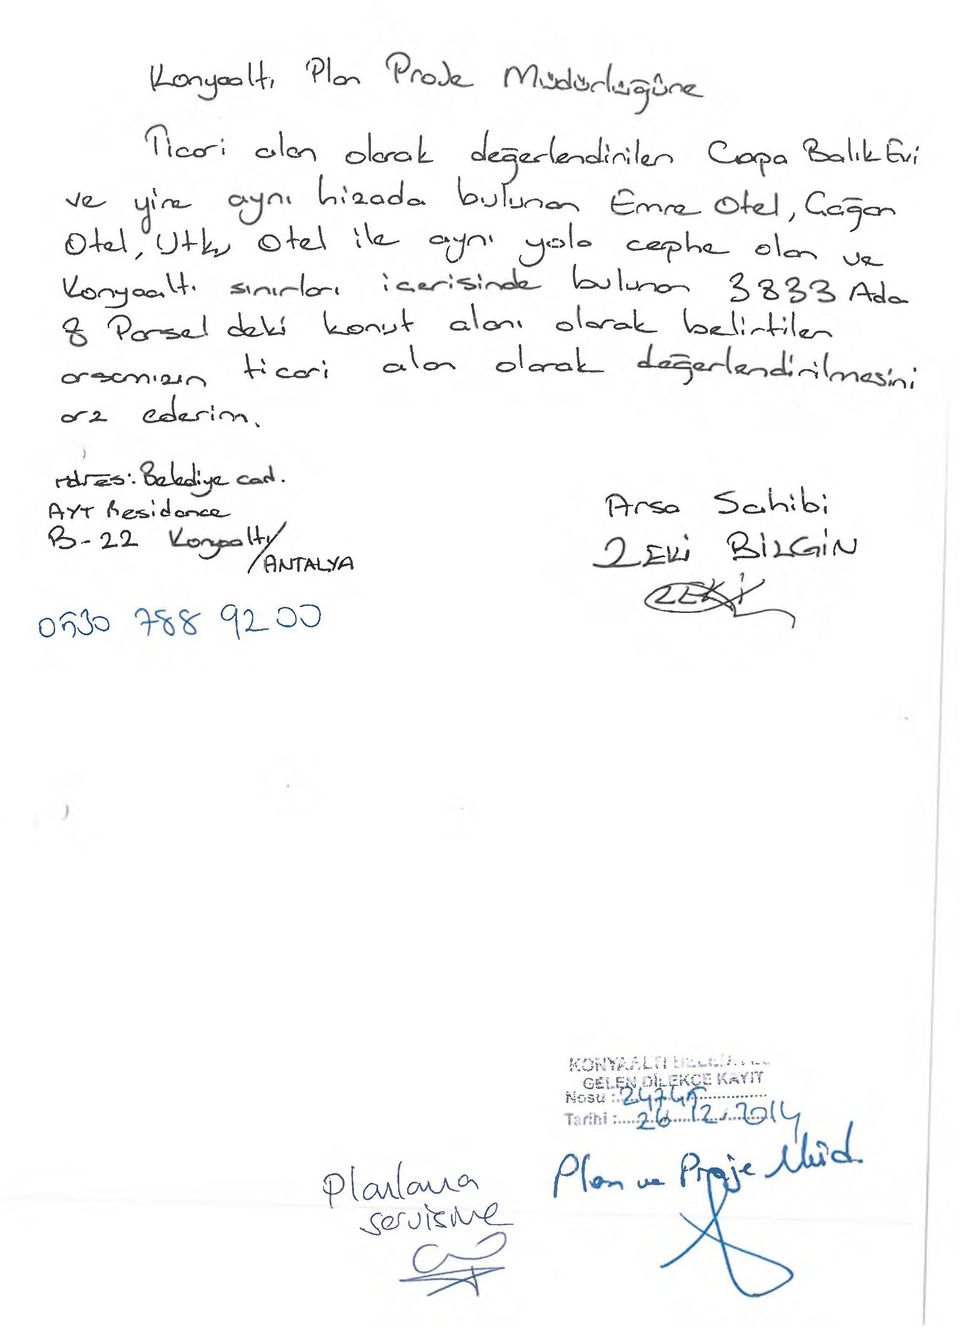 Konyaaltı Plan Proje Müdürlüğüne
Ticari alan olarak değerlendirilen Çapa Balık Evi
ve yine aynı hizada bulunan Emre Otel, Çağan
Otel, Utku Otel ile aynı yola cephe olan ve
Konyaaltı sınırları içerisinde bulunan 3833 Ada
8 Parsel deki konut alanı olarak belirtilen
arsamızın ticari alan olarak değerlendirilmesini
arz ederim.
Adres: Belediye cad.
AYT Residance
B-22 Konyaaltı/
ANTALYA
Arsa Sahibi
ZEKİ BİLGİN
ZEKİ
0530 788 92 00
KONYAALTI
GELEN DİLEKÇE KAYIT
Nosu : 24745
Tarihi : 26.12.2014
Plan ve Proje Müd.
Planlama
servisine